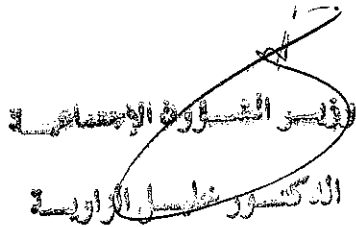 وزير الشؤون الإجتماعية
الدكتور خليل الزاوية